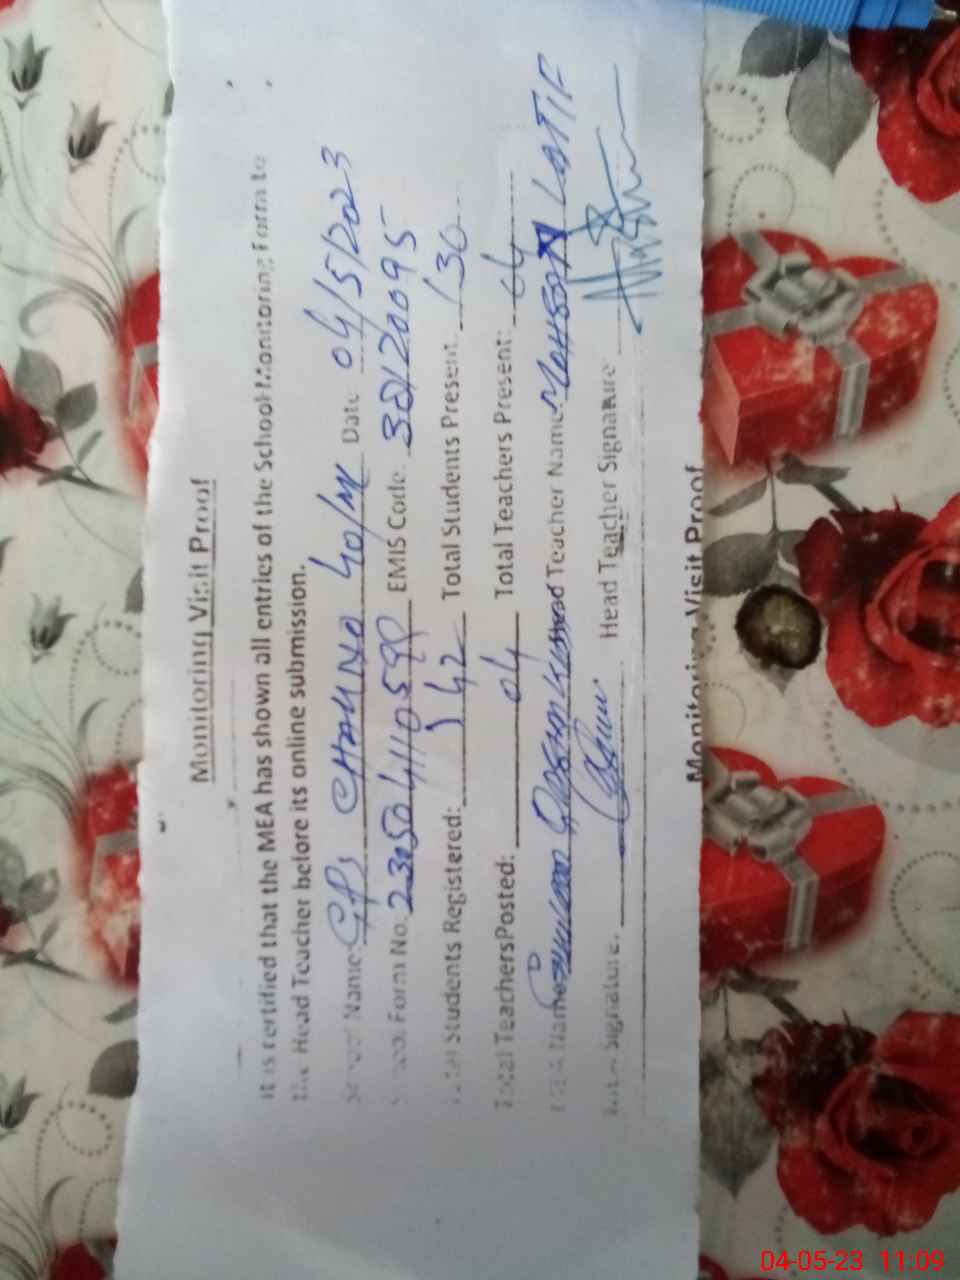 Monitoring Visit Proof
It is certified that the MEA has shown all entries of the School Monitoring Form to
the Head Teacher before its online submission.
School Name: GPS CHAK NO 40/M Date 04/5/2023
Form No: EMIS Code. 38120095
Total Students Registered: 142 Total Students Present. 130
Total Teachers Posted: 04 Total Teachers Present: 04
MEA Name Head Teacher Name: MOHSON LATIF
MEA Signature. Head Teacher Signature
Monitoring Visit Proof
04-05-23 11:09